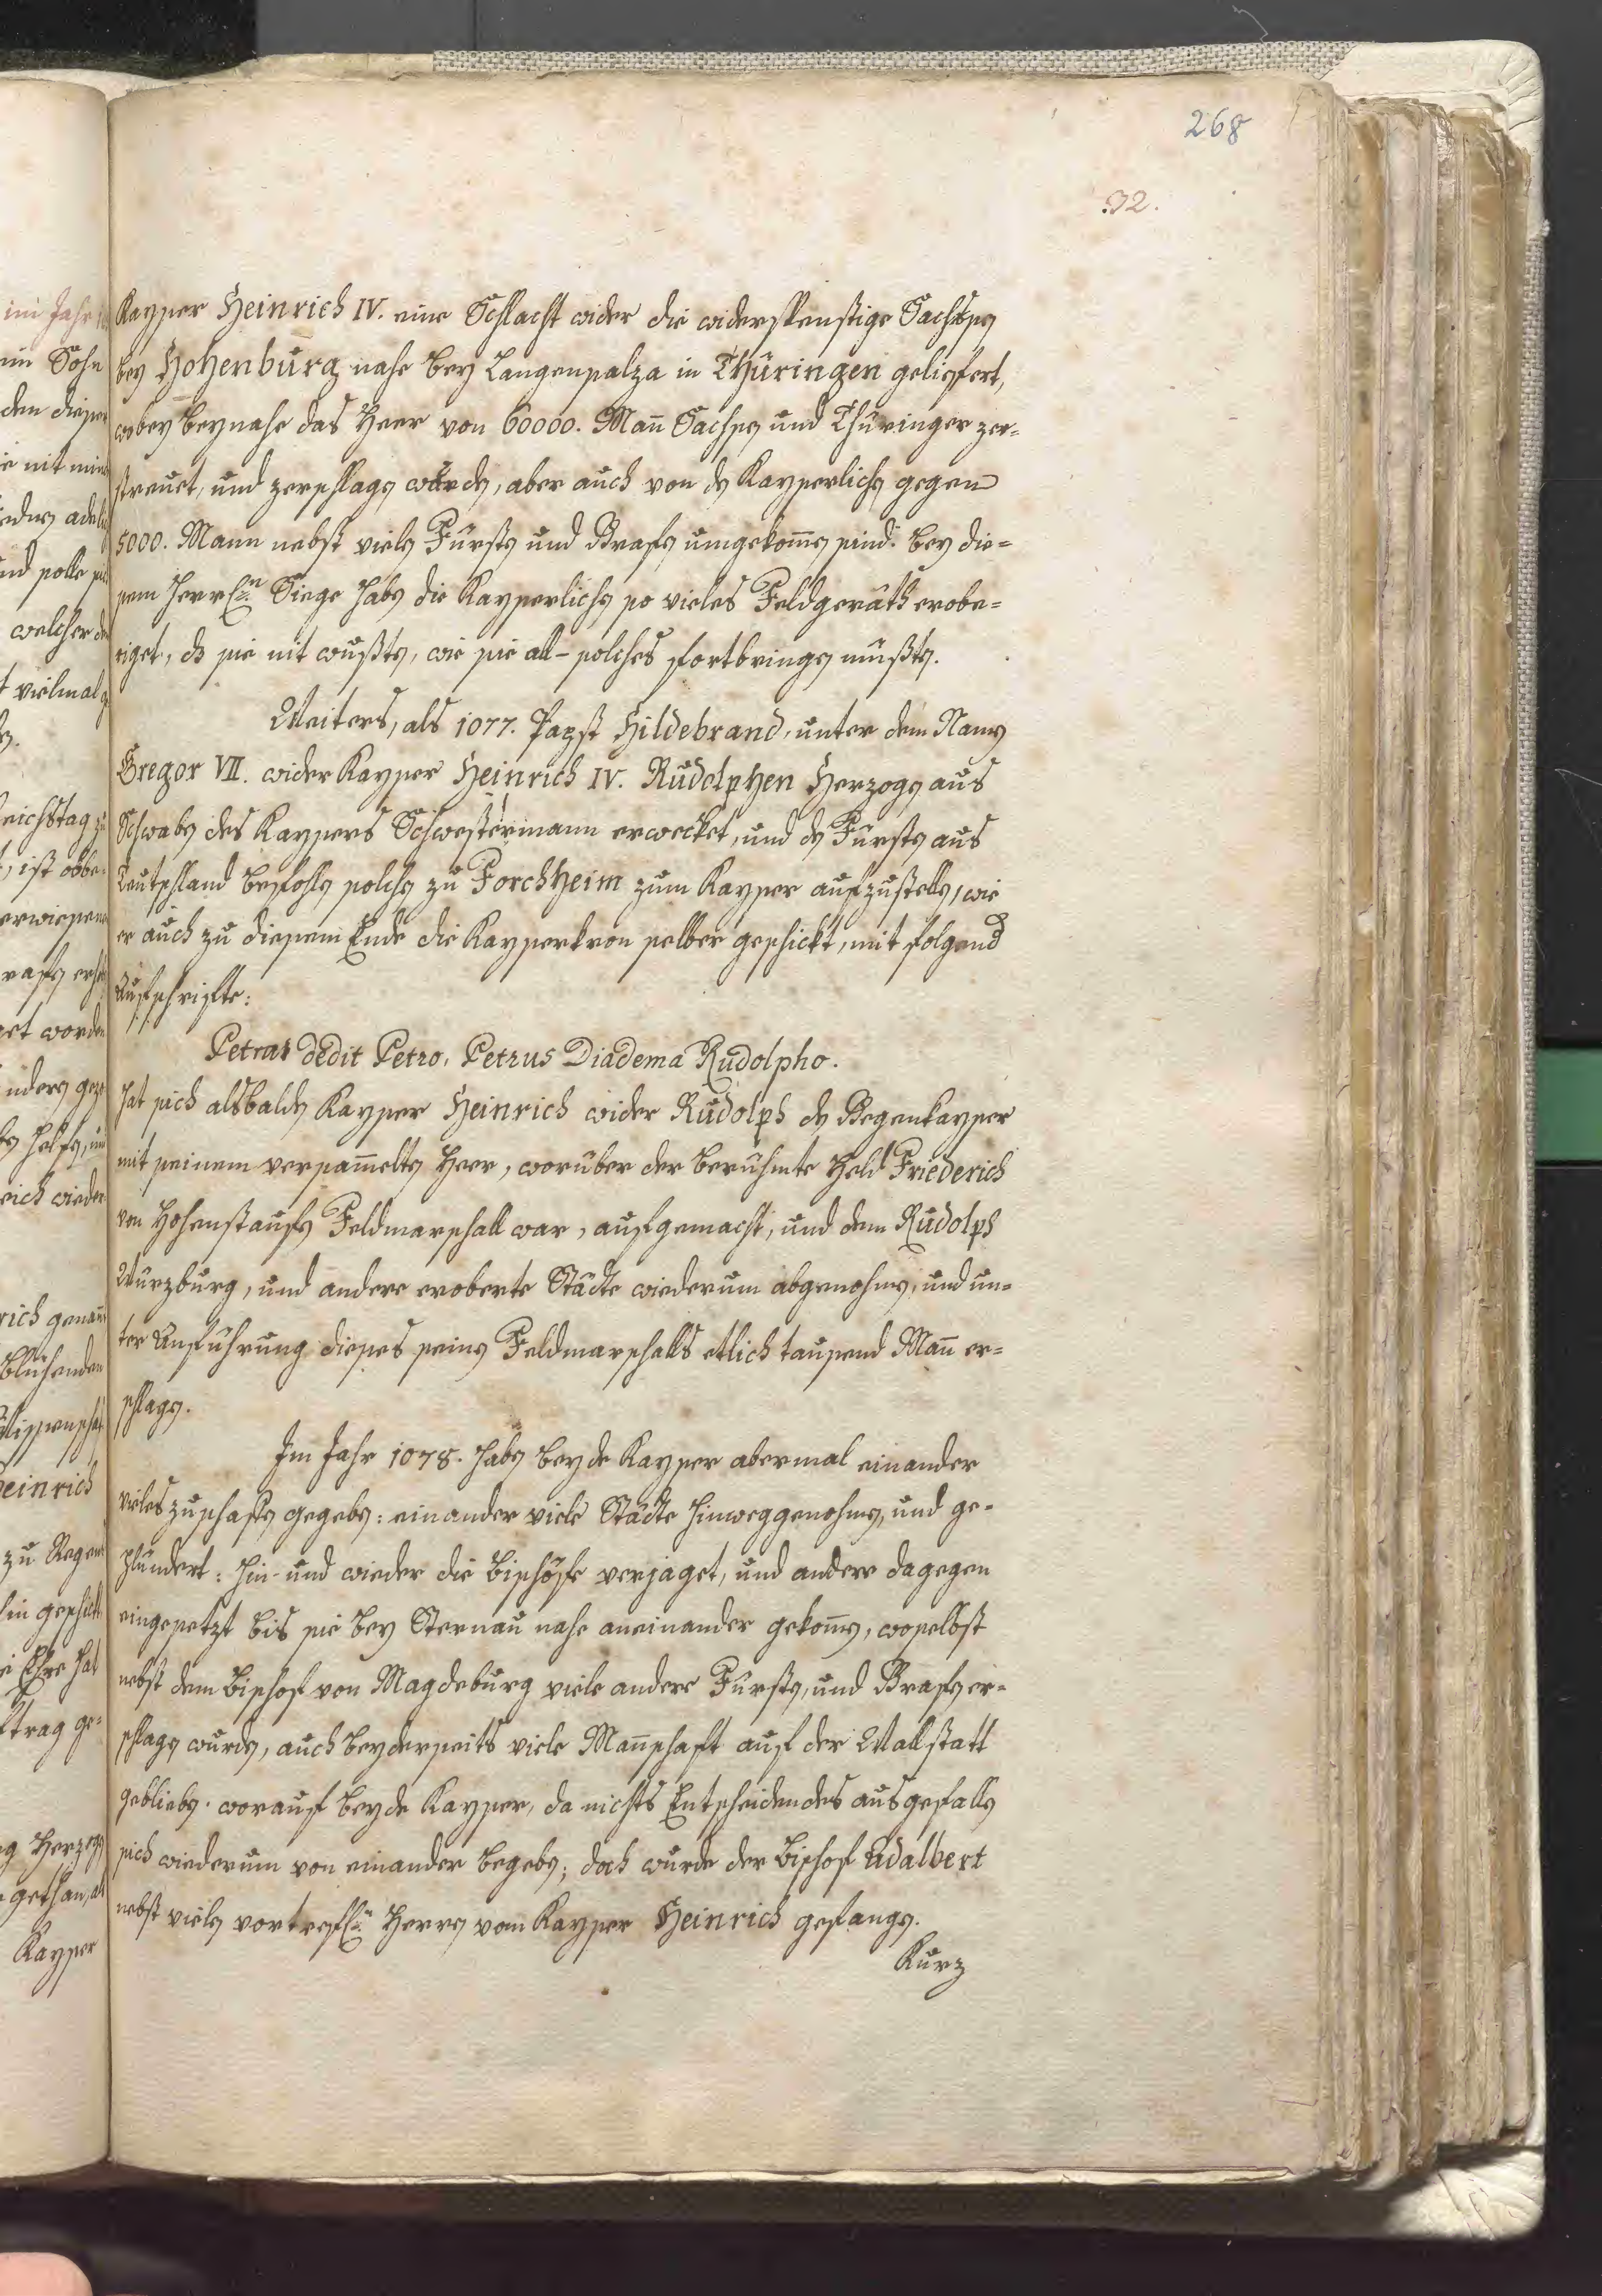 268
32.
Kayser Heinrich IV. eine Schlacht wider die widerspenstige Sachsen
bey Hohenburg nahe bey Langensalza in Thüringen geliefert,
wobey beynahe das Heer von 60000. Man̄ Sachsen und Thüringer zer=
streuet, und zerschlagen wurden, aber auch von den Kayserlichen gegen
5000. Mann nebst vielen Fürsten und Grafen umgekom̄en sind. Bey die=
sem herrlen Siege haben die Kayserlichen so vieles Feldgeräth erobe=
riget, ds sie nit wußten, wie sie all- solches fortbringen müßten.
Weiters, als 1077. Papst Hildebrand, unter dem Namen
Gregor VII. wider Kayser Heinrich IV. Rudolphen Herzogen aus
Schwaben des Kaysers Schwestermann erwecket, und den Fürsten aus
Teutschland befohlen solchen zu Forchheim zum Kayser aufzustellen, wie
er auch zu diesem Ende die Kayserkron selber geschickt, mit folgend
Aufschrifte:
Petra dedit Petro, Petrus Diadema Rudolpho.
hat sich alsbalden Kayser Heinrich wider Rudolph den Gegenkayser
mit seinem versam̄elten Heer, worüber der berühmte Held Friederich
von Hohenstaufen Feldmarschall war, aufgemacht, und dem Rudolph
Würzburg, und andere eroberte Städte wiederum abgenohmen, und un=
ter Anführung dieses seines Feldmarschalls etlich tausend Man̄ er=
schlagen.
Im Jahr 1078. haben beyde Kayser abermal einander
vieles zuschaffen gegeben: einander viele Städte hinweggenohmen, und ge=
plündert: hin- und wieder die Bischöfe verjaget, und andere dagegen
eingesetzt bis sie bey Sternau nahe aneinander gekom̄en, woselbst
nebst dem Bischof von Magdeburg viele andere Fürsten, und Grafen er=
schlagen wurden, auch beyderseits viele Man̄schaft auf der Wallstatt
geblieben. worauf beyde Kayser, da nichts Entscheidendes ausgefallen
sich wiederum von einander begeben; doch wurde der Bischof Adalbert
nebst vielen vortreflen Herren vom Kayser Heinrich gefangen.
Kurz